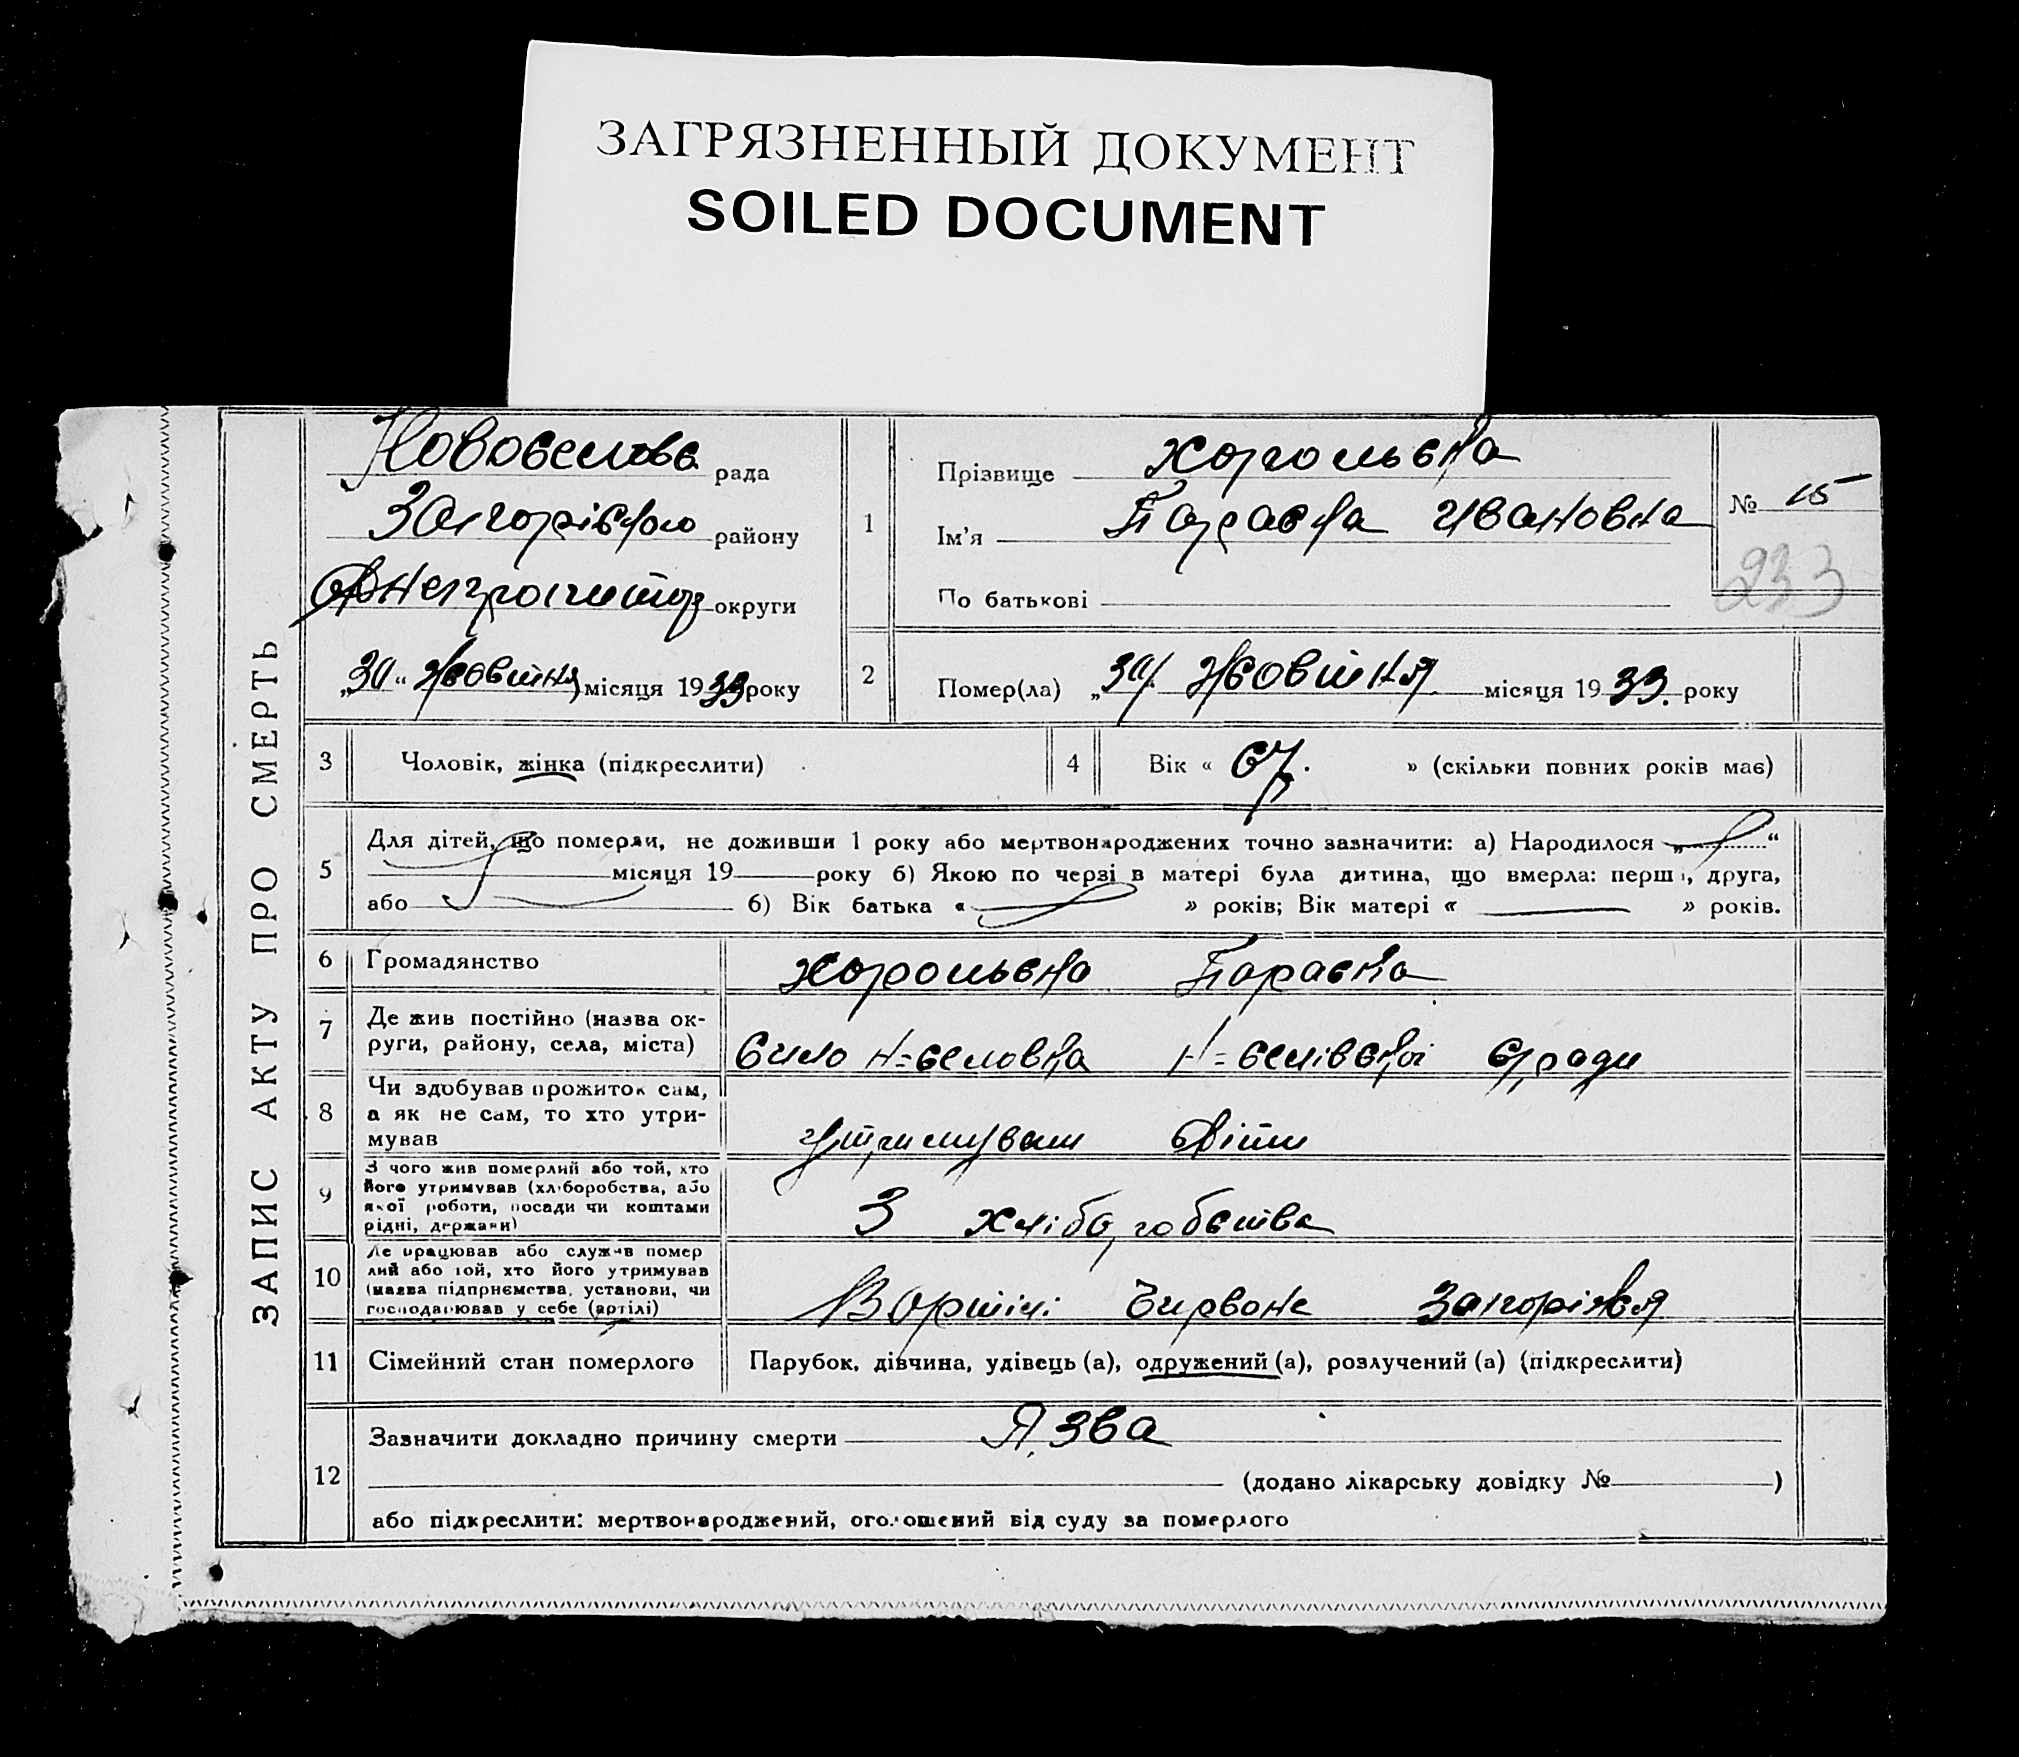 ЗАГРЯЗНЕННЫЙ ДОКУМЕНТ
SOILED DOCUMENT
ЗАПИС АКТУ ПРО СМЕРТЬ
Новоселовс рада
району
округи
„30“ Жовтня місяця 1933 року
1
Прізвище
Ім'я Параска Ивановна
По батькові
№ 15
233
2
Помер(ла) „30 Жовтня місяця 1933. року
3
Чоловік, жінка (підкреслити)
4
Вік « 67. » (скільки повних років має)
5
Для дітей, що померли, не доживши 1 року або мертвонароджених точно зазначити: а) Народилося „ “
місяця 19 року б) Якою по черзі в матері була дитина, що вмерла: перша, друга,
або 6) Вік батька « » років; Вік матері « » років.
6
Громадянство
Параска
7
Де жив постійно (назва ок-
руги, району, села, міста)
Сило Н=селовка Н=селівської с/ради
8
Чи здобував прожиток сам,
а як не сам, то хто утри-
мував
утримували Діти
9
З чого жив померлий або той, хто
його утримував (хліборобства, або
якої роботи, посади чи коштами
рідні, держави)
З хліборобства
10
Де працював або служив помер
лий або той, хто його утримував
(назва підприємства, установи, чи
господарював у себе (артілі)
В артілі Чирвоне Запоріжжя
11
Сімейний стан померлого
Парубок, дівчина, удівець (а), одружений (а), розлучений (а) (підкреслити)
12
Зазначити докладно причину смерти Язва
(додано лікарську довідку № )
або підкреслити: мертвонароджений, оголошений від суду за померлого